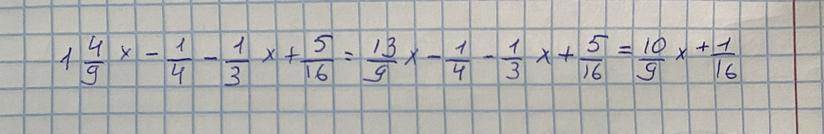 1 4/9 x - 1/4 - 1/3 x + 5/16 = 13/9 x - 1/4 - 1/3 x + 5/16 = 10/9 x + 1/16